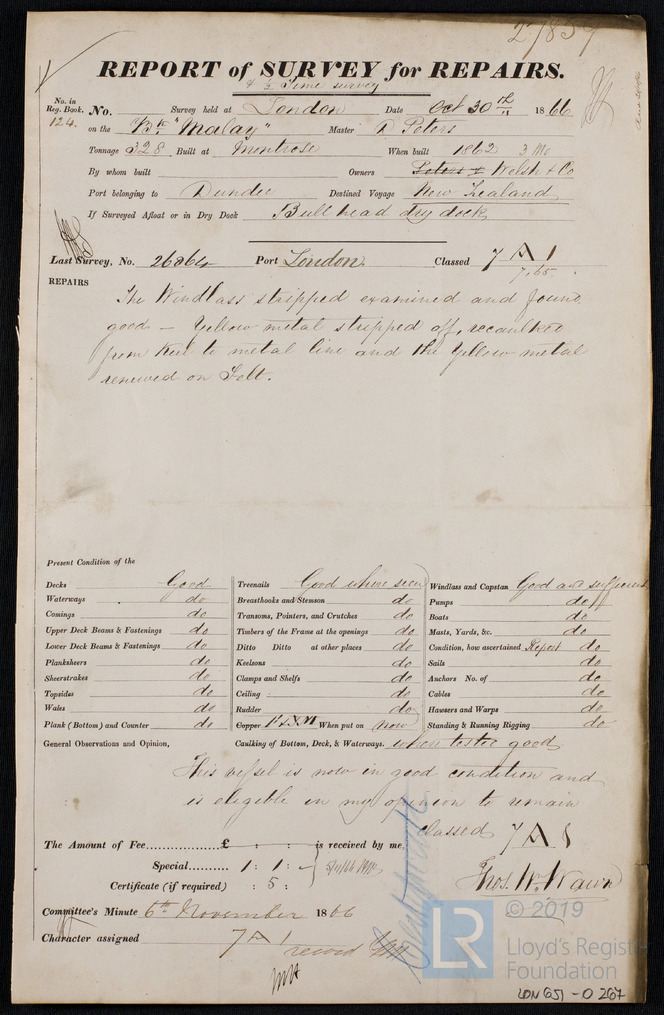 27859
REPORT of SURVEY for REPAIRS.
& ½ Time survey
No. in Reg. Book. No. Survey held at London Date Oct 30th 1866
124. on the Bk "Malay" Master D Peters
Tonnage 328 Built at Montrose When built 1862 3 Mo
By whom built Owners Peters & Welsh & Co
Port belonging to Dundee Destined Voyage New Zealand
If Surveyed Afloat or in Dry Dock Bull head dry dock
Last Survey, No. 26064 Port London Classed 7 A 1
7,65
REPAIRS
The Windlass stripped examined and found
good – Yellow metal stripped off, recaulked
from Keel to metal line and the Yellow metal
renewed on Felt.
Present Condition of the
Decks Good Treenails Good where seen Windlass and Capstan Good and sufficient
Waterways do Breasthooks and Stemson do Pumps do
Comings do Transoms, Pointers, and Crutches do Boats do
Upper Deck Beams & Fastenings do Timbers of the Frame at the openings do Masts, Yards, &c. do
Lower Deck Beams & Fastenings do Ditto Ditto at other places do Condition, how ascertained Report do
Planksheers do Keelsons do Sails do
Sheerstrakes do Clamps and Shelfs do Anchors No. of do
Topsides do Ceiling do Cables do
Wales do Rudder do Hawsers and Warps do
Plank (Bottom) and Counter do Copper F&YM When put on now Standing & Running Rigging do
General Observations and Opinion, Caulking of Bottom, Deck, & Waterways. when tested good
This vessel is now in good condition and
is eligible in my opinion to remain
classed 7 A 1
The Amount of Fee £ : : is received by me,
Special 1 : 1 :
Certificate (if required) : 5 :
Thos. W. Wawn
Committee's Minute 6th November 1866
Character assigned 7 A 1
© 2019
LR
Lloyd's Register
Foundation
LDN651-0267